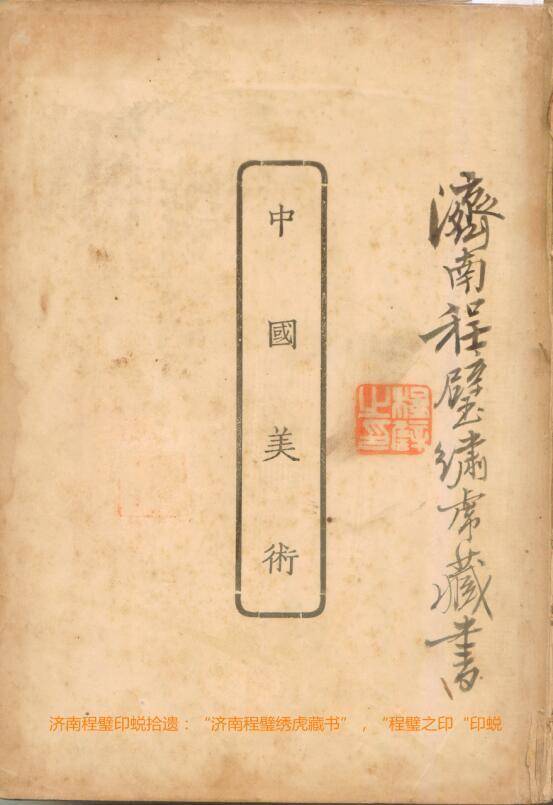 濟南程璧繡虎藏書
中國美術
程璧之印
济南程璧印蜕拾遗：“济南程璧绣虎藏书”，“程璧之印“印蜕